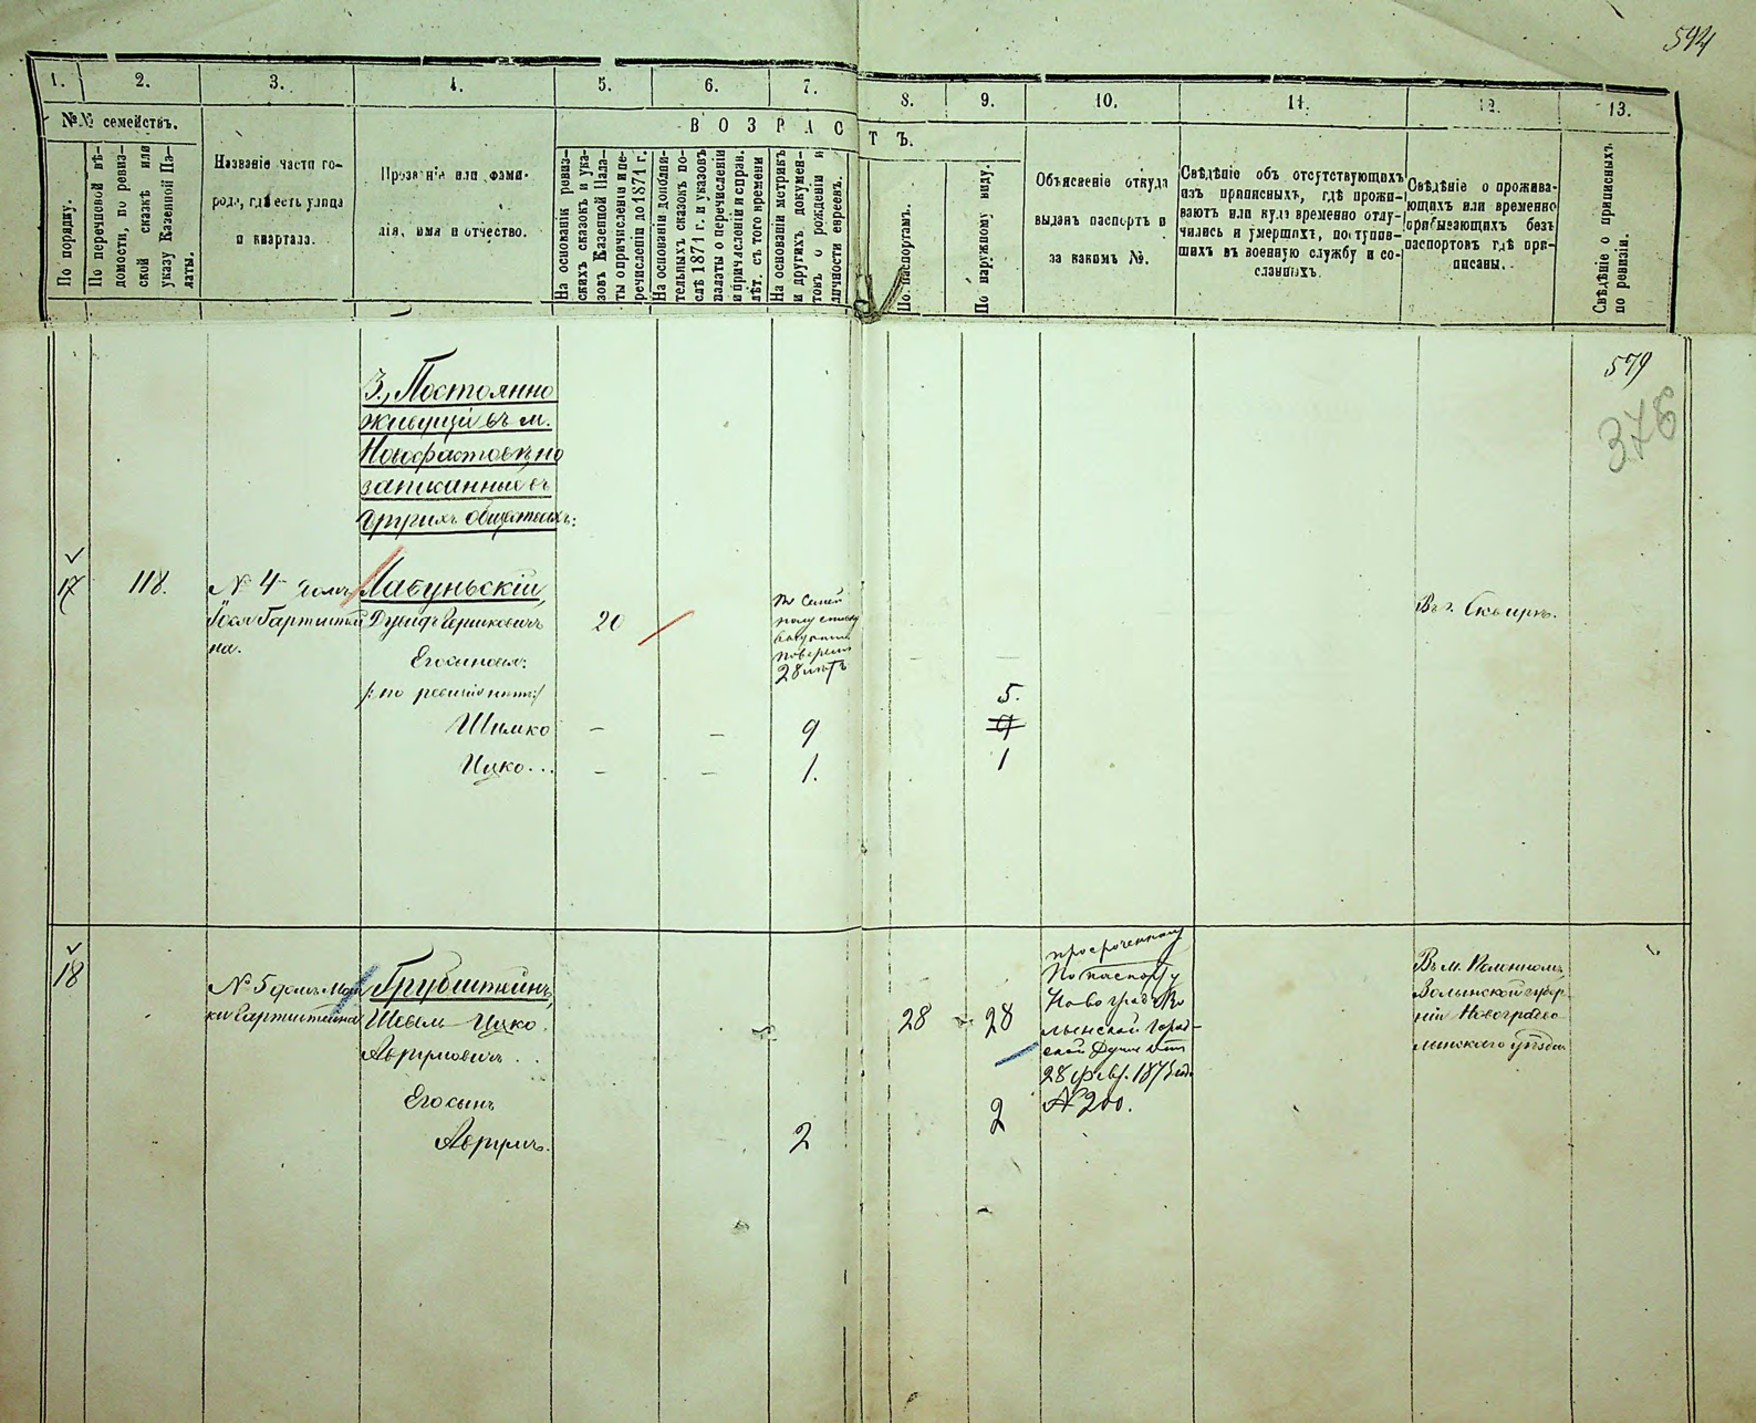 594
1. 2. 3. 4. 5. 6. 7. 8. 9. 10. 11. 12. 13.
№№ семействъ.
По порядку.
По перечневой вѣ-
домости, по ревиз-
ской сказкѣ или
указу Казенной Па-
латы.
Названіе части го-
рода, гдѣ есть улица
и квартала.
Прозваніе или фами-
лія, имя и отчество.
ВОЗРАСТЪ.
На основаніи ревиз-
скихъ сказокъ и ука-
зовъ Казенной Пала-
ты о причисленіи и пе-
речисленіи до 1871 г.
На основаніи дополни-
тельныхъ сказокъ по-
слѣ 1871 г. и указовъ
палаты о перечисленіи
и причисленіи и справ.
лѣт. съ того времени
На основаніи метрикъ
и другихъ докумен-
товъ о рожденіи и
личности евреевъ.
По паспортамъ.
По наружному виду.
Объясненіе откуда
выданъ паспортъ и
за какимъ №.
Свѣдѣніе объ отсутствующихъ
изъ приписныхъ, гдѣ прожи-
ваютъ или куда временно отлу-
чились и умершихъ, поступив-
шихъ въ военную службу и со-
сланныхъ.
Свѣдѣніе о прожива-
ющихъ или временно
прибывающихъ безъ
паспортовъ гдѣ при-
писаны.
Свѣдѣніе о приписныхъ
по ревизіи.
579
376
3., Постоянно
живущіе въ м.
Новофастовѣ, но
записанные въ
другихъ обществахъ:
17
118.
№ 4 домъ
Гартштей
на.
Лабуньскій,
Дувидъ Берковичъ
Его сыновья:
/: по ревизіи нѣтъ :/
Шимко
Ицко...
20
—
—
—
—
28 лѣтъ
9
1.
5.
9
1
Въ г. Сквирѣ.
18
№ 5 домъ Мош
ки Гартштейна
Грубштейнъ,
Шевель Ицко
Аврумовичъ..
Его сынъ
Аврумъ.
2
28
28
2
просроченному
По паспорту
Новоградъ Во
лынской Город-
ской Думы отъ
28 февр. 1873 года
№ 200.
Въ м. Каменномъ
Волынской губер
ніи Новоградво
линскаго уѣзда